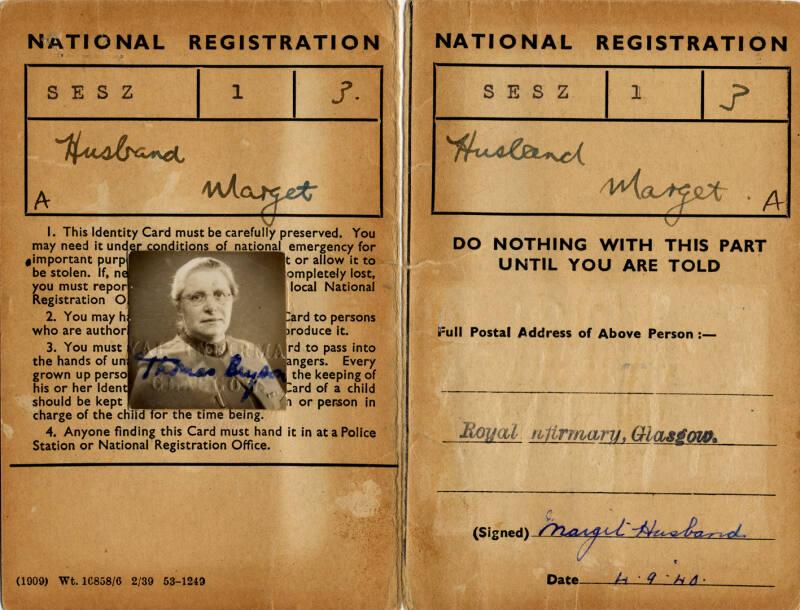 NATIONAL REGISTRATION
SESZ 1 3.
Husband
Marget
A
1. This Identity Card must be carefully preserved. You
may need it under conditions of national emergency for
important purp t or allow it to
be stolen. If, ne ompletely lost,
you must repor local National
Registration O
2. You may ha Card to persons
who are author produce it.
3. You must rd to pass into
the hands of un angers. Every
grown up perso the keeping of
his or her Ident Card of a child
should be kept n or person in
charge of the child for the time being.
4. Anyone finding this Card must hand it in at a Police
Station or National Registration Office.
Thomas Bryson
(1909) Wt. 16858/6 2/39 53-1249
NATIONAL REGISTRATION
SESZ 1 3
Husband
Marget.
A
DO NOTHING WITH THIS PART
UNTIL YOU ARE TOLD
Full Postal Address of Above Person:—
Royal nfirmary, Glasgow.
(Signed) Margit Husband
Date 4.9.40.